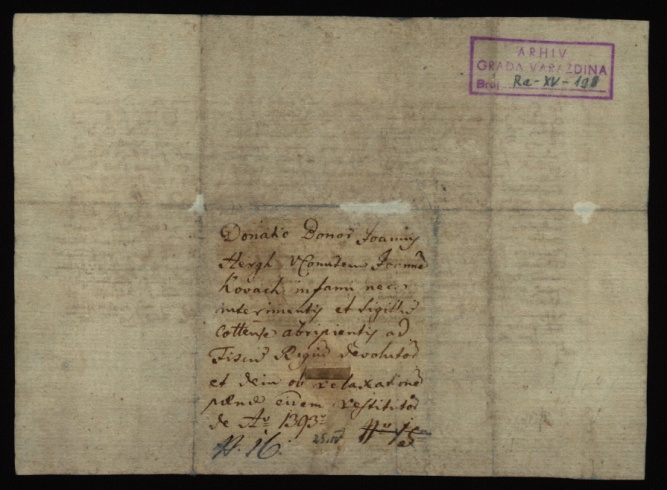 ARHIV
GRADA VARAŽDINA
Broj Ra-XV-198
Donatio Bonor Joannis
Hergh VComitem Joannem
Kovach infami nece
interimentis et Sigillum
Cottense abripientis ad
Fiscum Regium devolutor
et dein ob relaxationem
pænæ eidem restitutor
de Ao 1393
No 15
N. 16. 25.IV